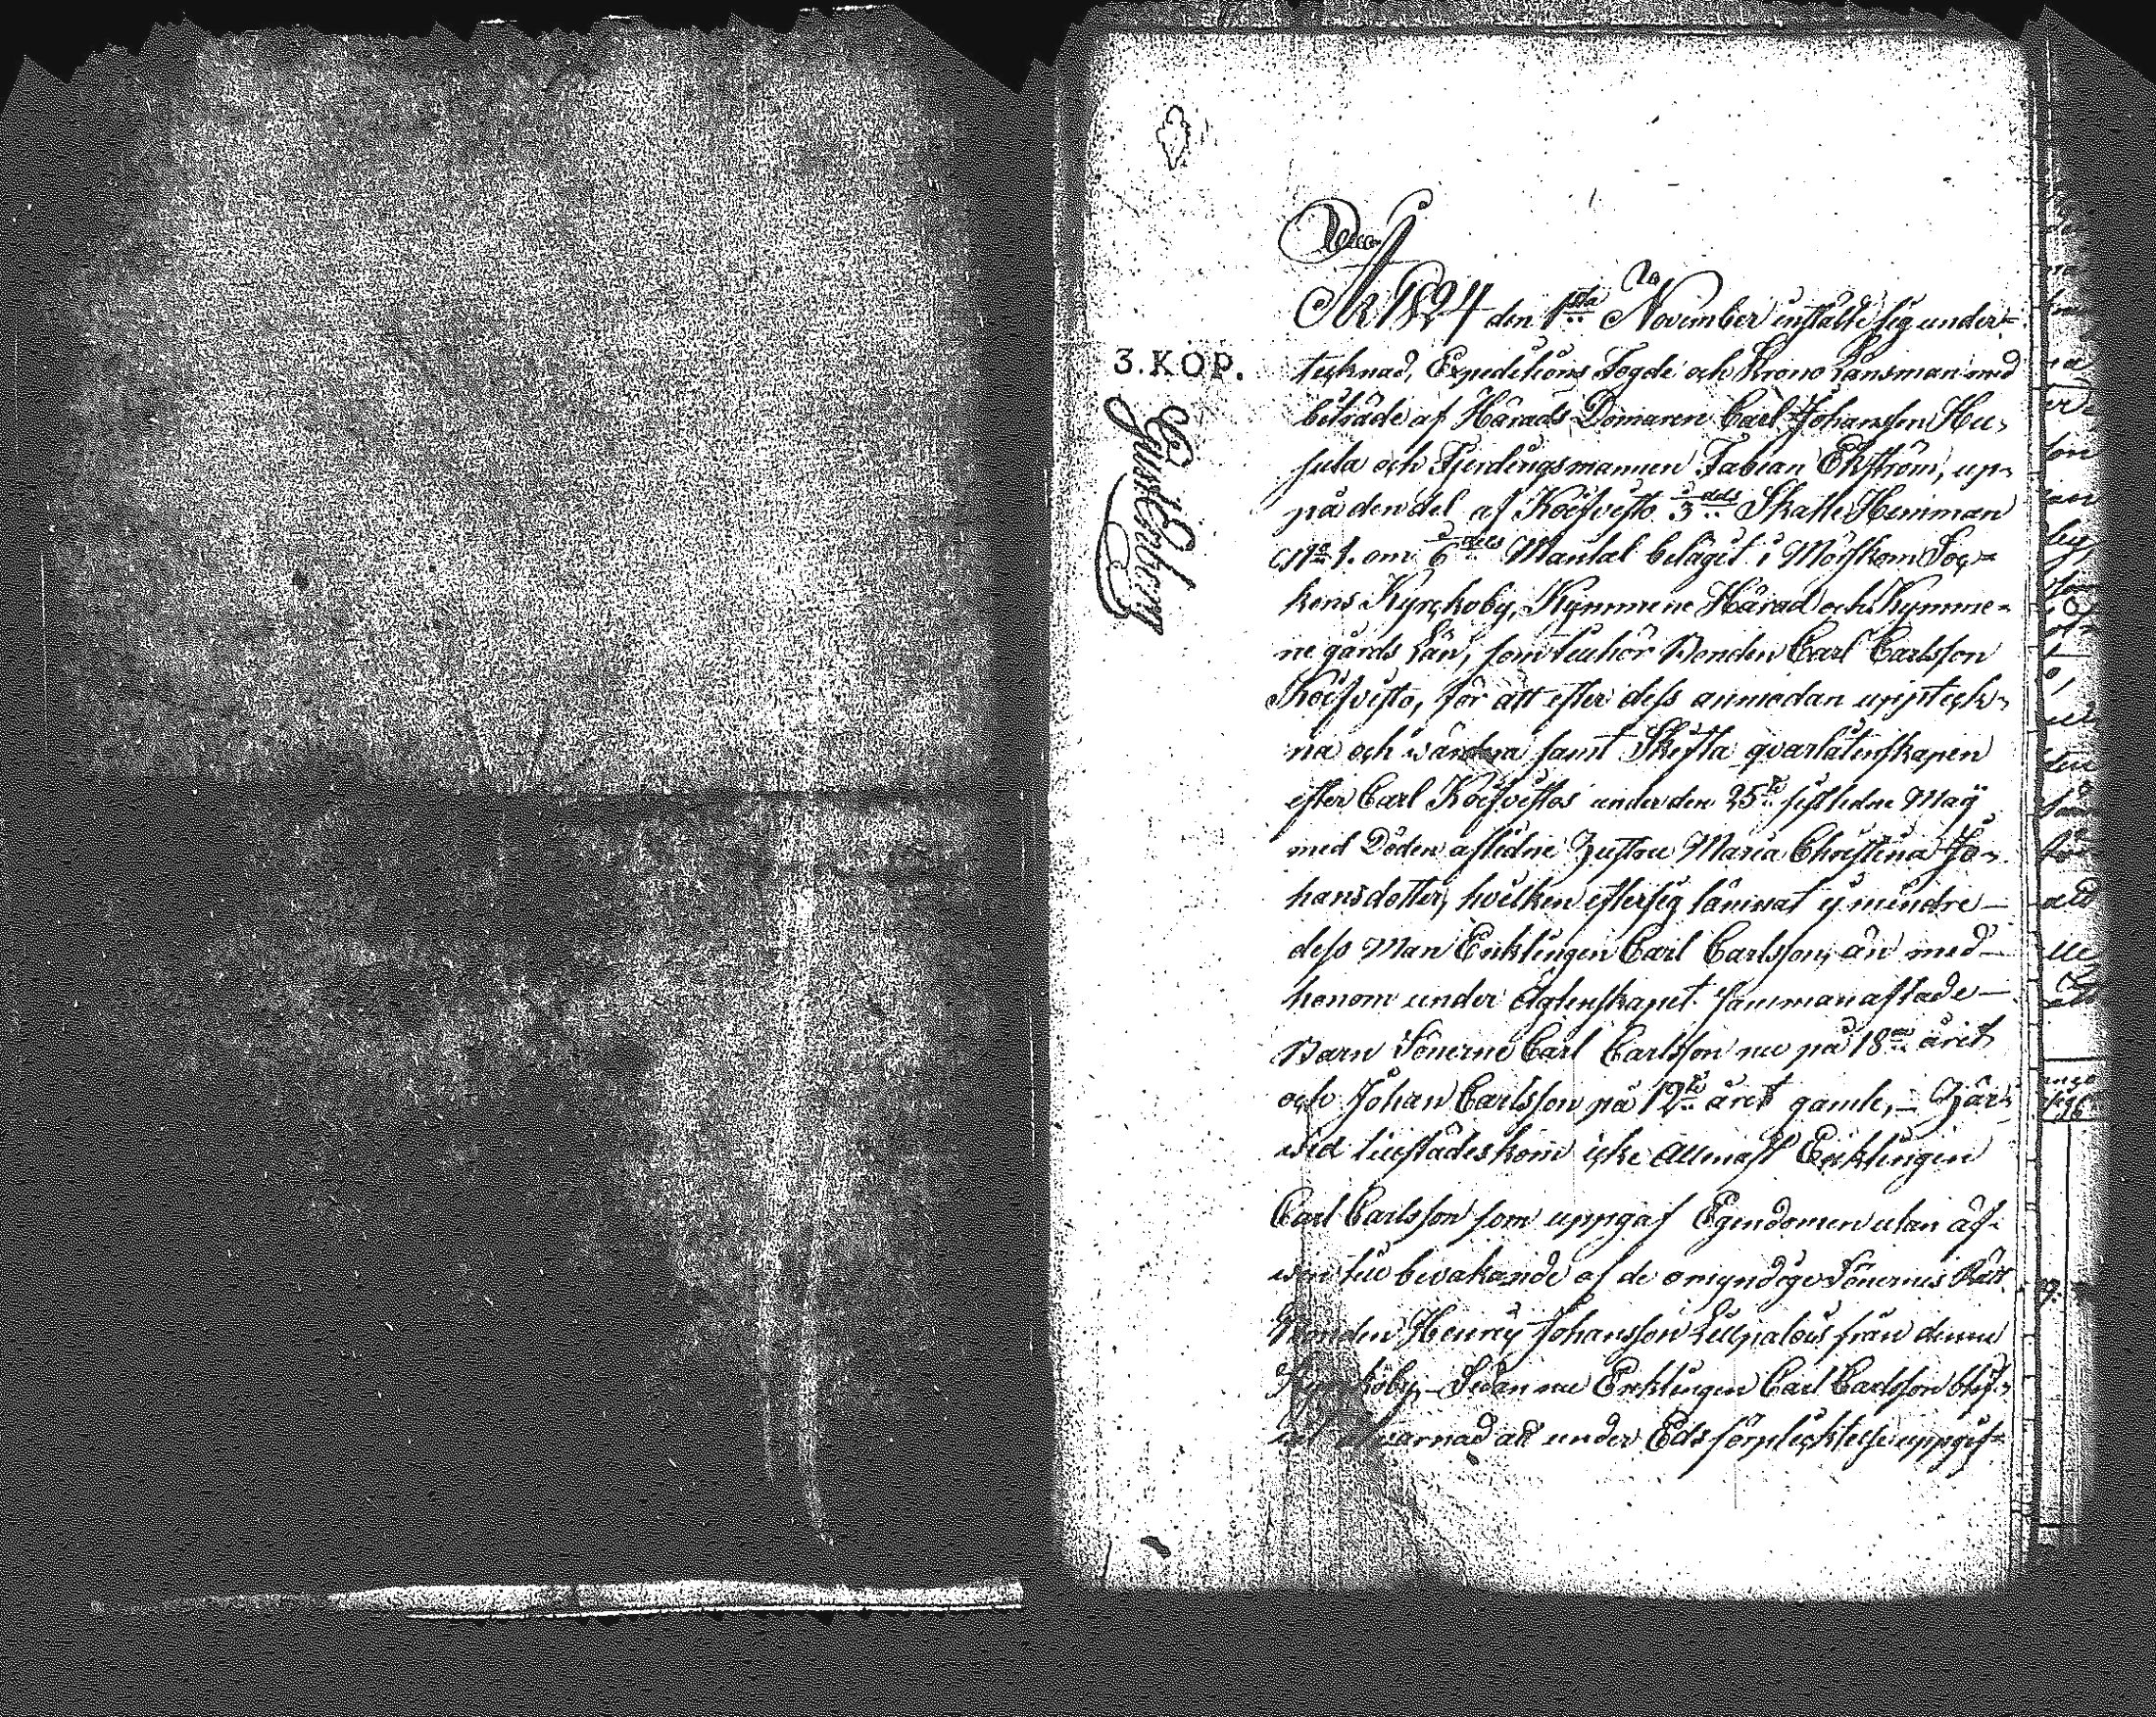 3. KOP.
Gust Enberg
År 1824 den 1sta November instälde sig under-
tecknad, Expeditions Fogde och Krono Länsman med
biträde af Härads Domaren Carl Johansson Hu-
sula och Fjerdingsmannen Fabian Ekström, up-
på den del af Koifvisto 3dels Skatte Hemman
No 1. om 6dels Mantal belägit i Mörskom Soc-
kens Kyrckoby, Kymmene Härad och Kymme-
negårds Län, som tillhör Bonden Carl Carlsson
Koifvisto, för att efter dess anmodan uppteck-
na och värdera samt Skifta qvarlåtenskapen
efter Carl Koifvistos under den 25te sistledne Maÿ
med Döden aflidne Hustru Maria Christina Jo-
hansdotter, hvilken efter sig lämnat ej mindre
dess Man Enklingen Carl Carlsson, än med
honom under Ägtenskapet sammanaflade
Barn Sönerne Carl Carlsson nu på 18de året
och Johan Carlsson på 12te året gamle, — Här-
vid tillstädeskom icke allenast Enklingen
Carl Carlsson som uppgaf Egendomen utan äf-
ven till bevakande af de omyndige Sönernes Rätt
Bonden Henric Johansson Lillpalois från denne
Kyrckoby, — Sedan nu Enklingen Carl Carlsson blif-
vit varnad att under Eds förplicktelse uppgif-